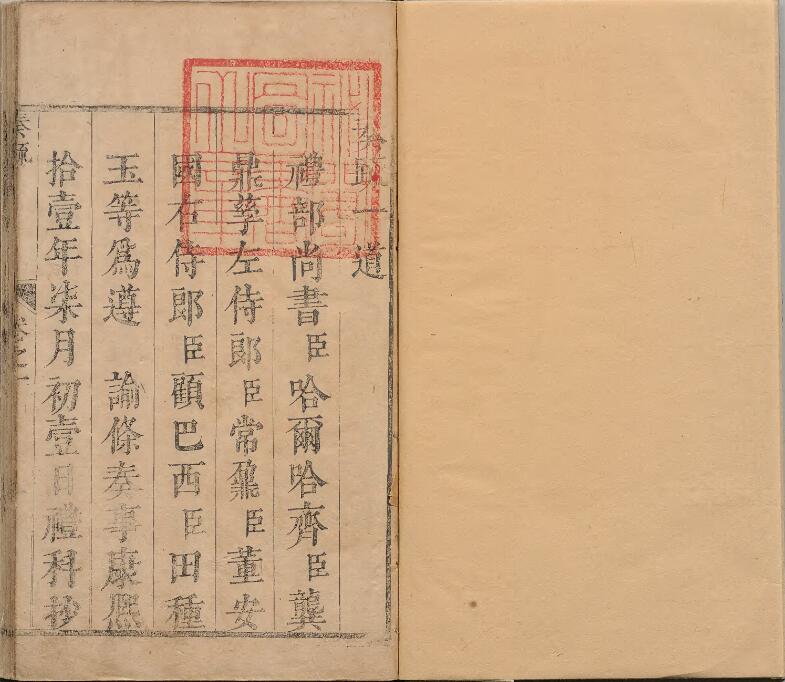 奏疏一道
禮部尚書臣哈爾哈齊臣龔
鼎孳左侍郎臣常鼐臣董安
國右侍郎臣顧巴西臣田種
玉等爲遵　諭條奏事康熙
拾壹年柒月初壹日禮科抄
奏疏　卷之一